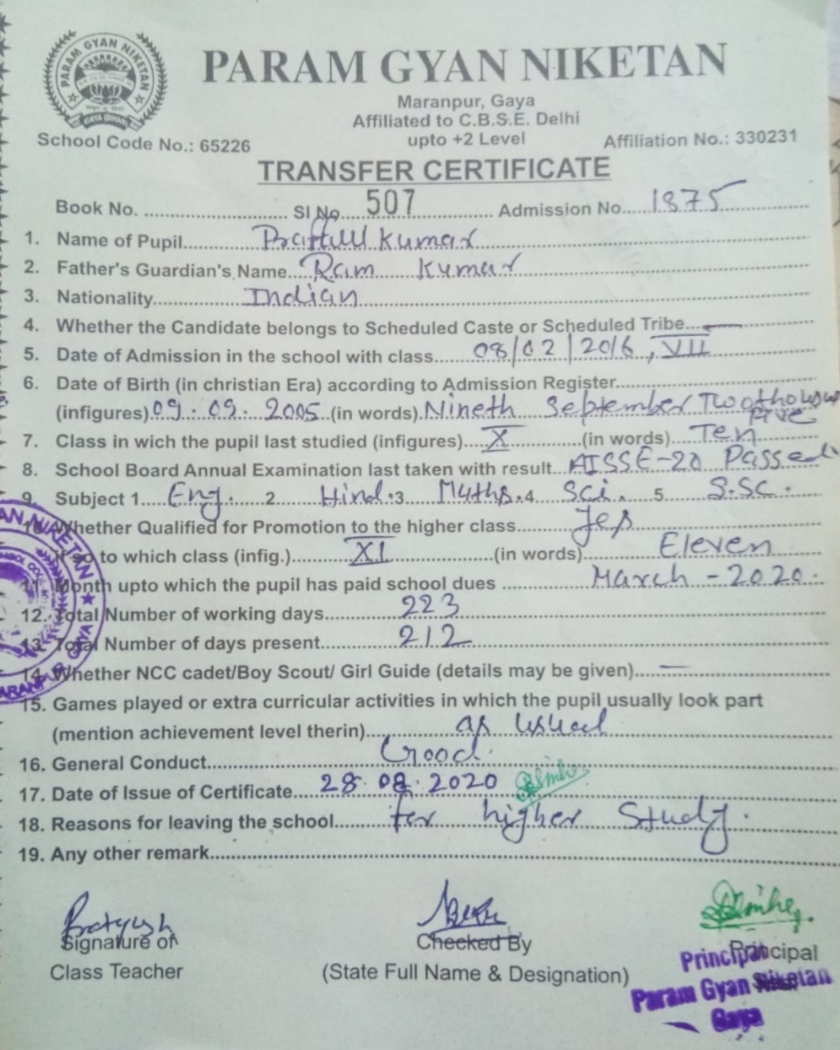 PARAM GYAN NIKETAN
GAYA BIHAR
PARAM GYAN NIKETAN
Maranpur, Gaya
Affiliated to C.B.S.E. Delhi
School Code No.: 65226 upto +2 Level Affiliation No.: 330231
TRANSFER CERTIFICATE
Book No. .................... Sl No.... 507 ............ Admission No.... 1875
1. Name of Pupil.......... Prafull Kumar
2. Father's Guardian's Name... Ram Kumar
3. Nationality............ Indian
4. Whether the Candidate belongs to Scheduled Caste or Scheduled Tribe... —
5. Date of Admission in the school with class...... 08/02/2016, VII
6. Date of Birth (in christian Era) according to Admission Register....................
(infigures) 09.09.2005 (in words) Nineth September Twothousand Five
7. Class in wich the pupil last studied (infigures).... X ..........(in words) Ten
8. School Board Annual Examination last taken with result... AISSE-20 Passed
9. Subject 1.... Eng. 2 Hind. 3 Maths. 4 Sci. 5 S.Sc.
10. Whether Qualified for Promotion to the higher class........ Yes
If so to which class (infig.)........ XI ..............(in words) Eleven
11. Month upto which the pupil has paid school dues ............ March - 2020.
12. Total Number of working days.......... 223
13. Total Number of days present.......... 212
14. Whether NCC cadet/Boy Scout/ Girl Guide (details may be given).... —
15. Games played or extra curricular activities in which the pupil usually look part
(mention achievement level therin)............ as usual
16. General Conduct.................... Good.
17. Date of Issue of Certificate.... 28.08.2020
18. Reasons for leaving the school........ for higher Study.
19. Any other remark....................
Pratyush
Signature of Checked By Principal
Class Teacher (State Full Name & Designation)
Principal
Param Gyan Niketan
Gaya